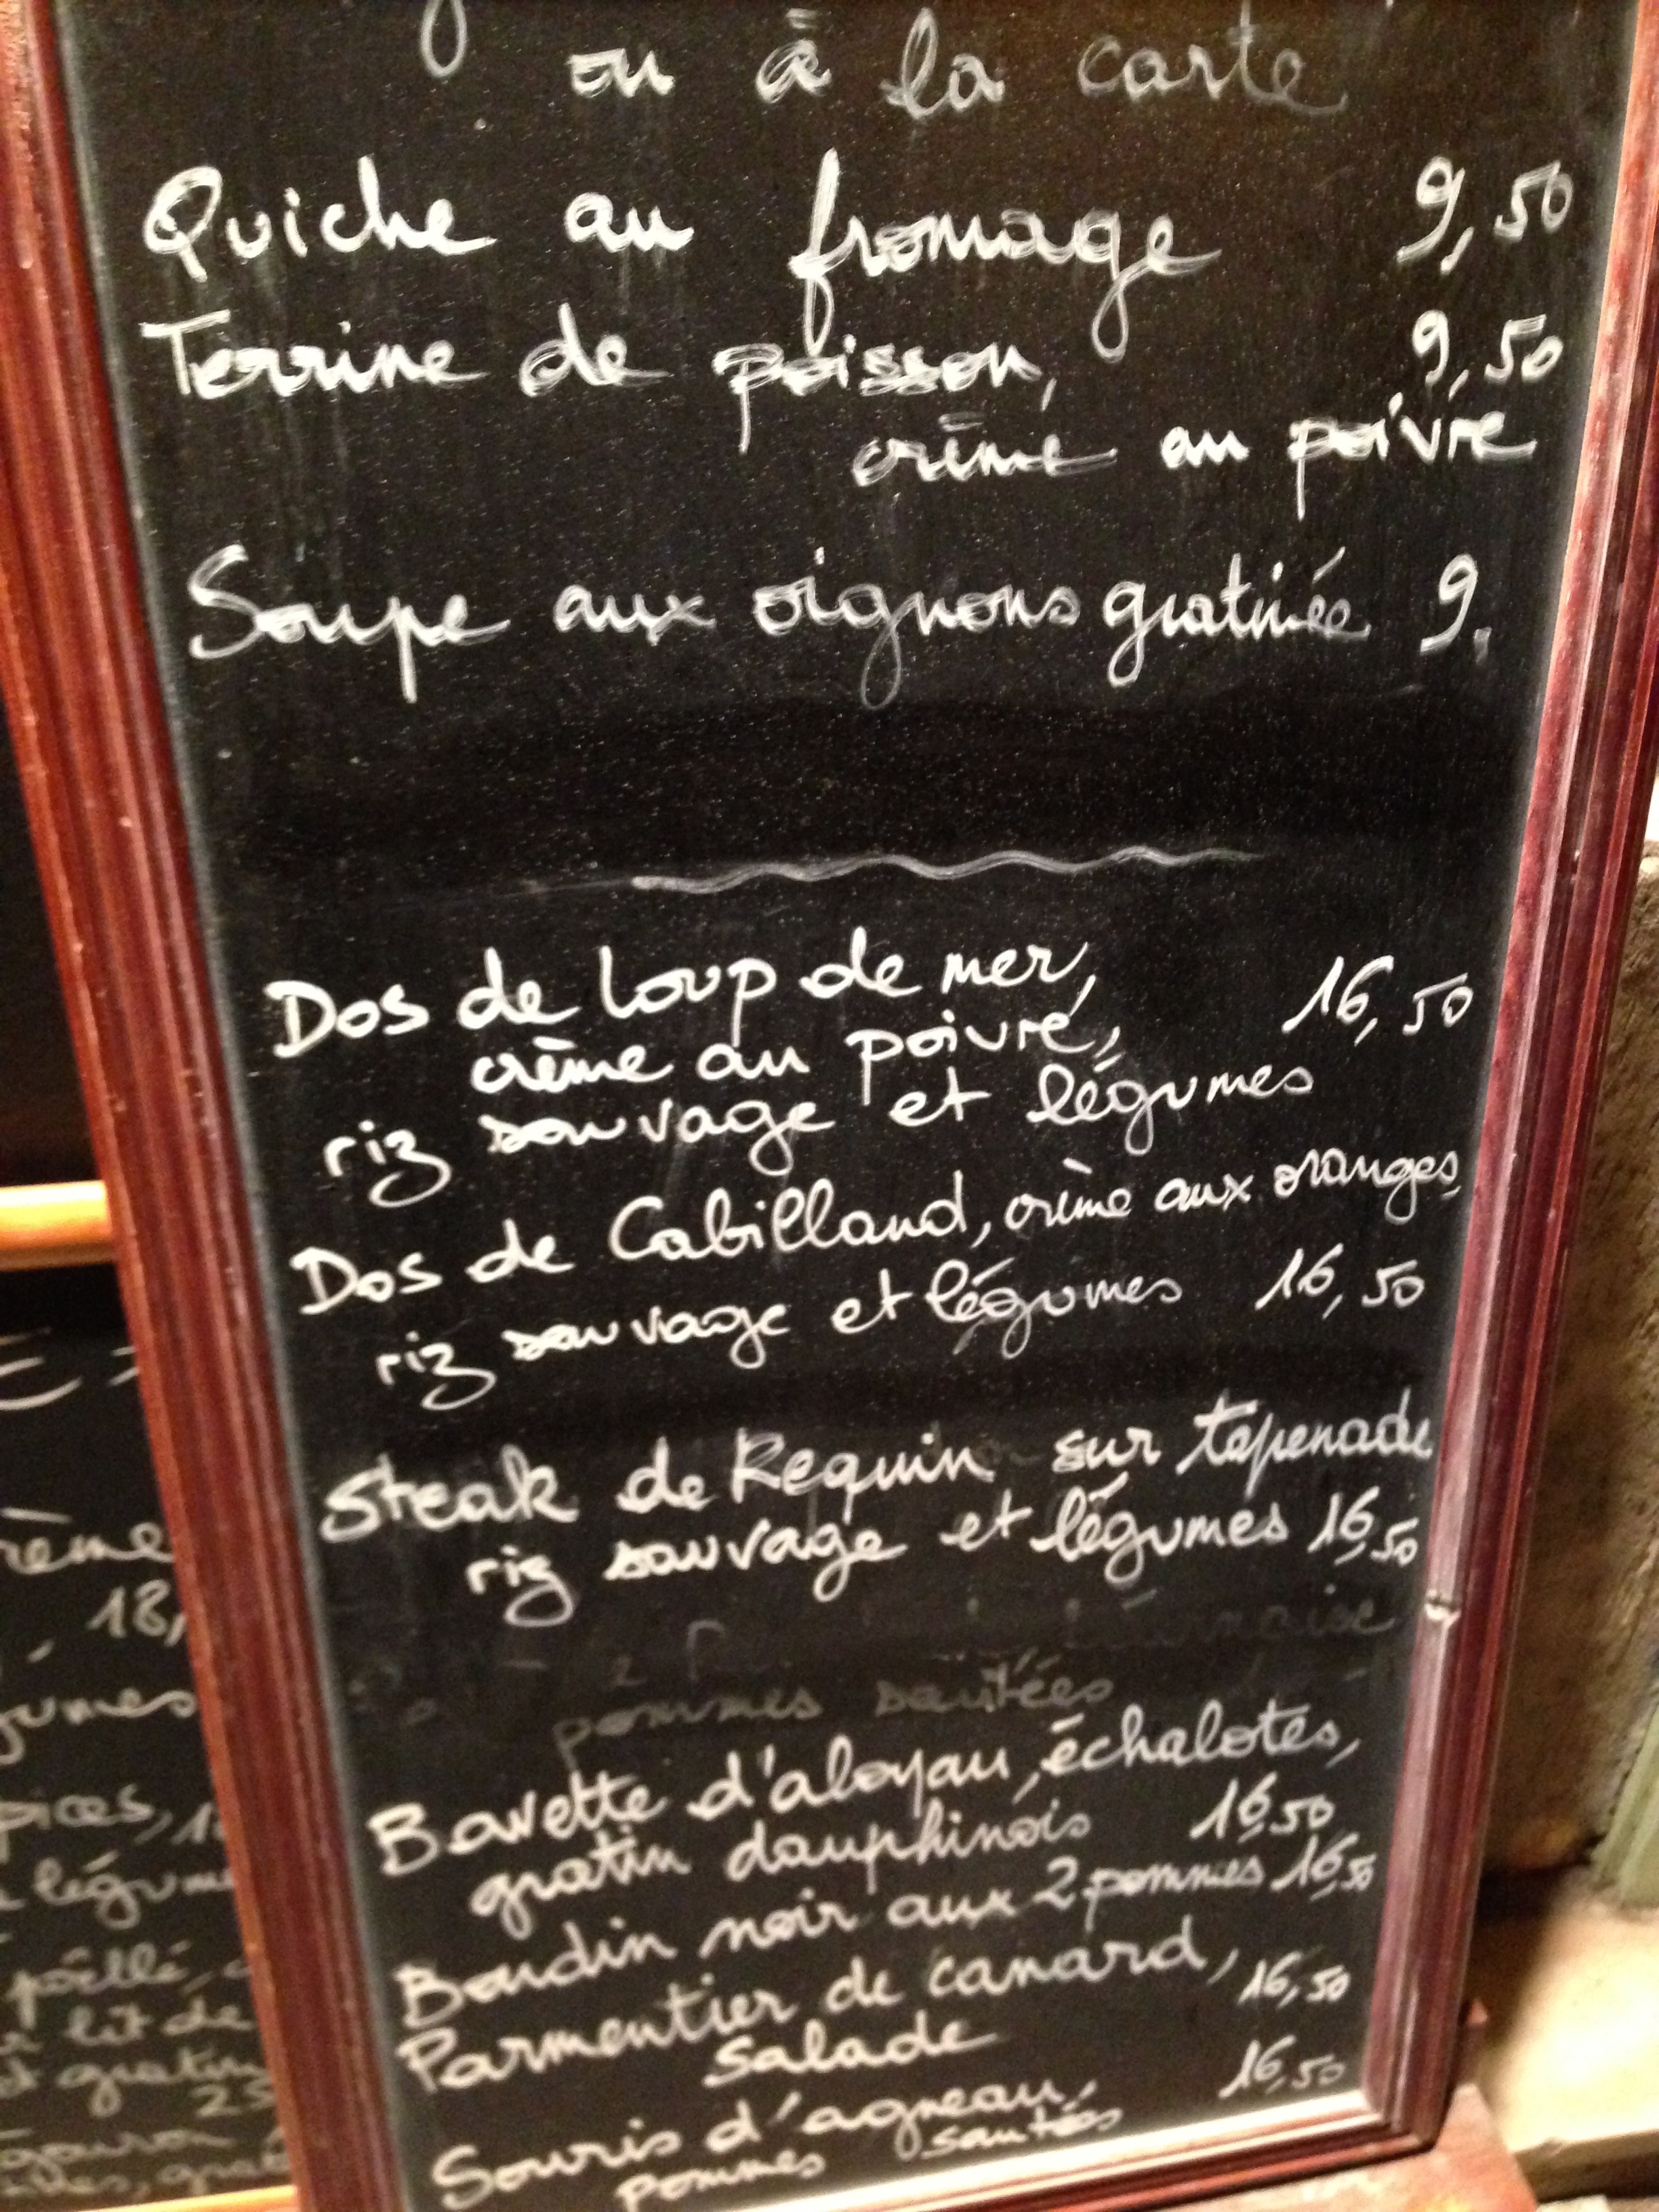 ou à la carte
Quiche au fromage 9,50
Terrine de poisson, 9,50
crème au poivre
Soupe aux oignons gratinée 9.
Dos de loup de mer, 16,50
crème au poivre,
riz sauvage et légumes
Dos de Cabillaud, crème aux oranges,
riz sauvage et légumes 16,50
Steak de Requin sur tapenade
riz sauvage et légumes 16,50
pommes sautées
Bavette d'aloyau, échalotes,
gratin dauphinois 16,50
Boudin noir aux 2 pommes 16,50
Parmentier de canard, 16,50
Salade
Souris d'agneau, 16,50
pommes sautées
18,
légume
poêllé,
lit de